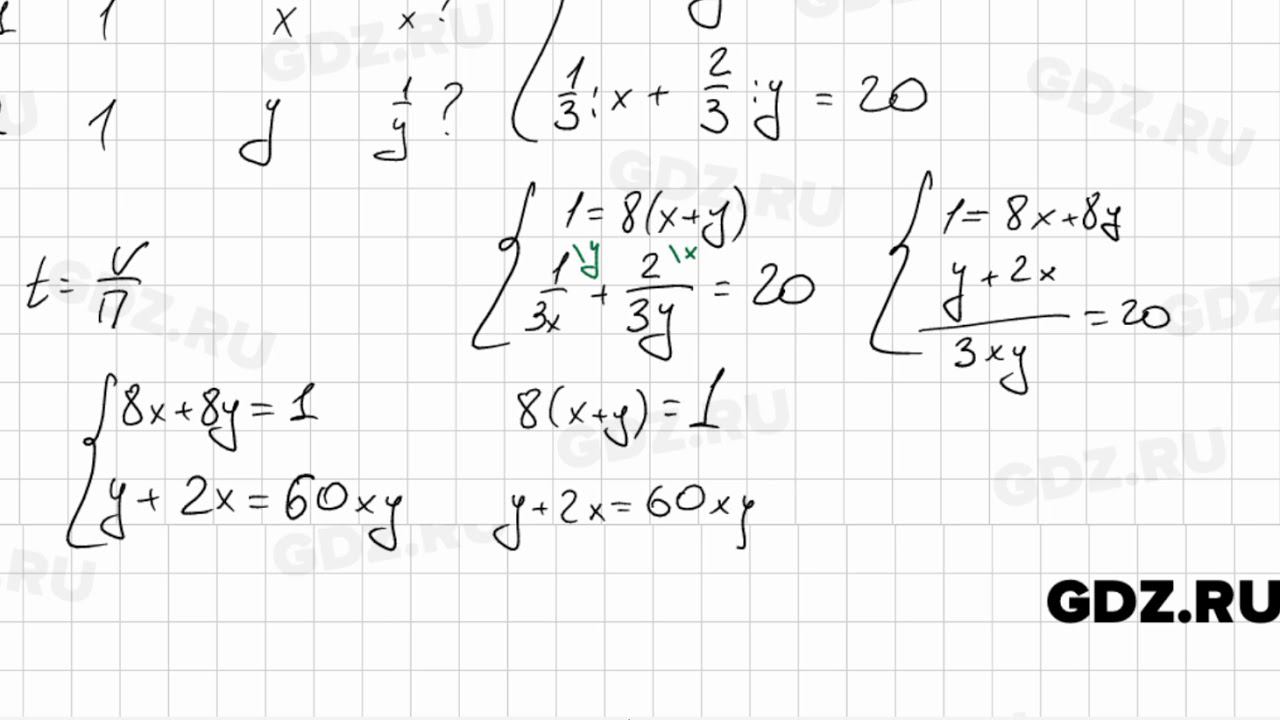 1 1 x x ? y
1/3 : x + 2/3 : y = 20
1 y 1/y ?
1 = 8(x+y)
1/3x \y + 2/3y \x = 20
1 = 8x+8y
y+2x/3xy = 20
t = V/П
8x+8y = 1
y + 2x = 60xy
8(x+y) = 1
y+2x = 60xy
GDZ.RU